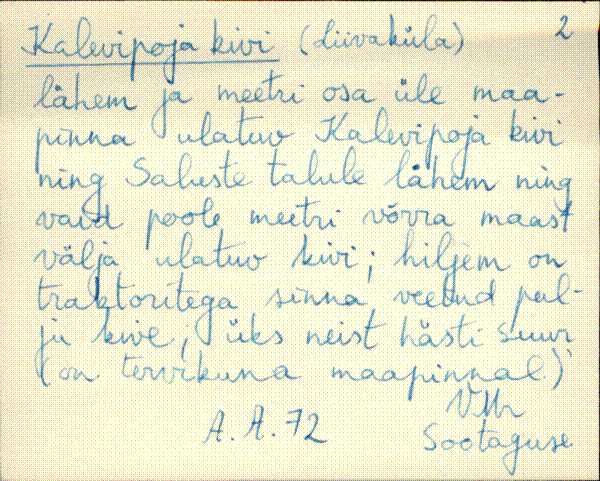 Kalevipoja kivi (Liivaküla) 2
lähem ja meetri osa üle maa-
pinna ulatuv Kalevipoja kivi
ning Saluste talule lähem ning
vaid poole meetri võrra maast
välja ulatuv kivi; hiljem on
traktoritega sinna veetud pal-
ju kive; üks neist hästi suur
(on tervikuna maapinnal.)
A. A. 72
Sootaguse